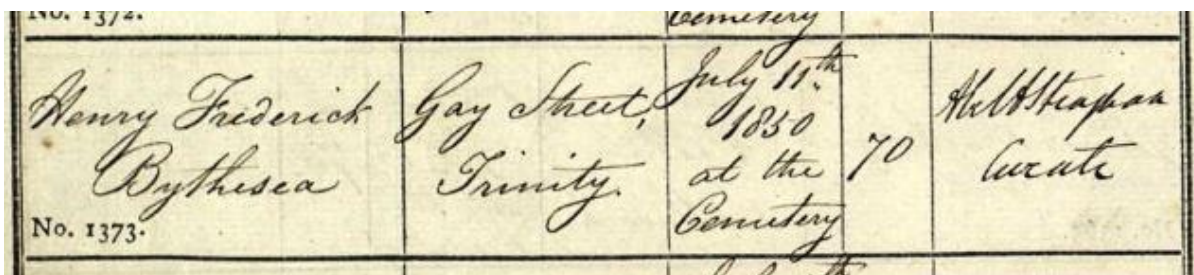 No. 1372.
Cemetery
Henry Frederick
Bythesea
No. 1373.
Gay Street,
Trinity.
July 11th
1850
at the
Cemetery
70
Curate